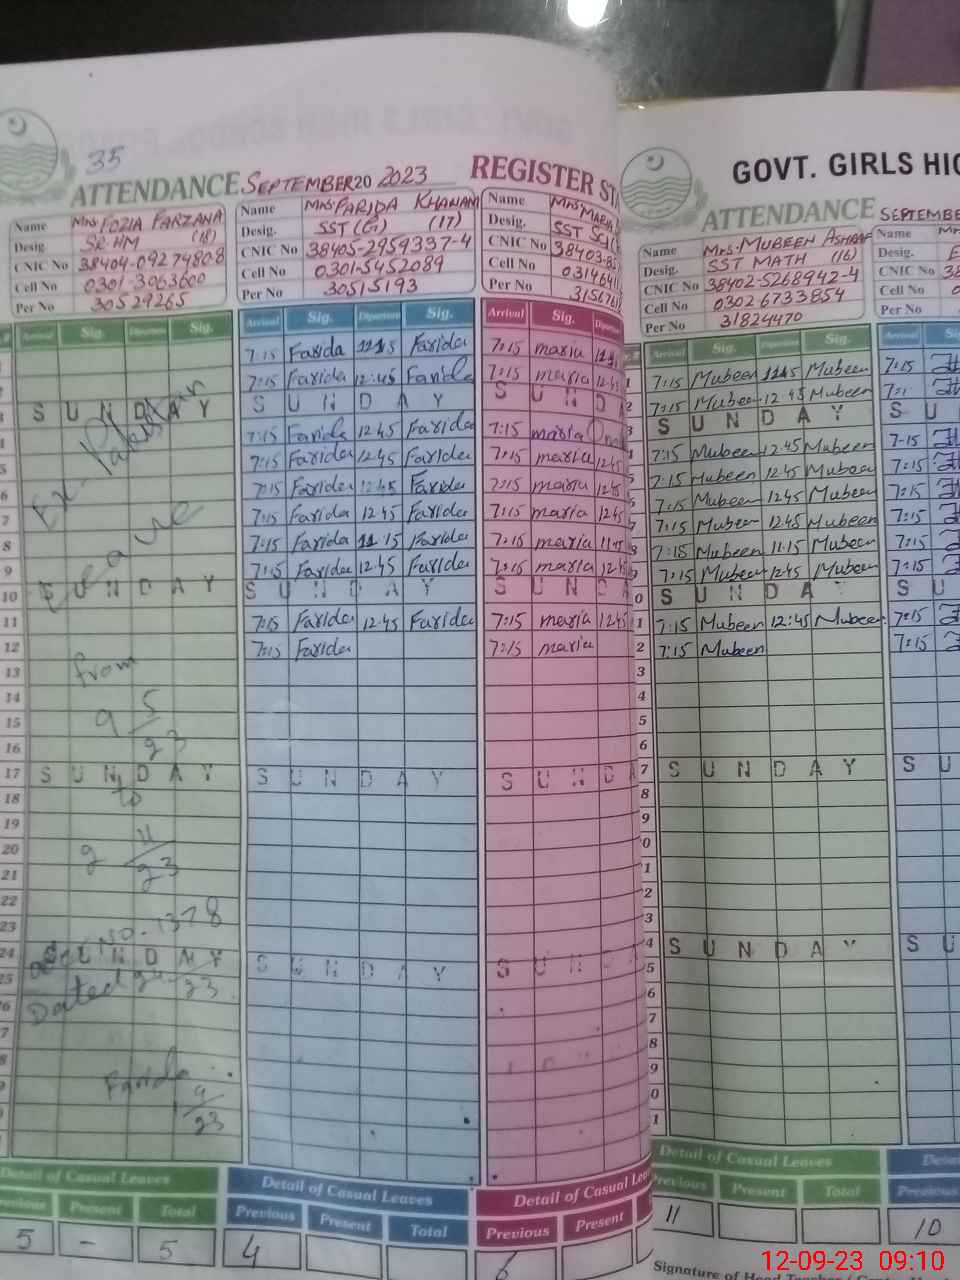 35
ATTENDANCE SEPTEMBER 20 2023 REGISTER
GOVT. GIRLS
ATTENDANCE SEPTEMBE
Name Mrs FOZIA FARZANA
Desig. SR HM (18)
CNIC No 38404-0927480-8
Cell No 0301-3063600
Per No 30529265
Name Mrs. FARIDA KHANAM
Desig. SST (G) (17)
CNIC No 38405-2959337-4
Cell No 0301-5452089
Per No 30515193
Name Mrs
Desig. SST
CNIC No 38403-
Cell No
Per No
Name Mrs. MUBEEN ASHRAF
Desig. SST MATH (16)
CNIC No 38402-5268942-4
Cell No 0302 6733854
Per No 31824470
Name
Desig.
CNIC No
Cell No
Per No
Arrival Sig. Departure Sig.
Arrival Sig. Departure Sig.
Arrival Sig.
Arrival Sig. Departure Sig.
Arrival
7:15 Farida Farida 7:15 maria 7:15 Mubeen Mubeen 7:15
7:15 Farida 12:45 Farida 7:15 maria 7:15 Mubeen 12 45 Mubeen
3 SUNDAY SUNDAY SUND SUNDAY SU
7:15 Farida 12 45 Farida 7:15 maria 7:15 Mubeen 12:45 Mubeen 7:15
5 7:15 Farida 12 45 Farida 7:15 maria 12 45 7:15 Mubeen 12 45 Mubeen 7:15
6 7:15 Farida 12 45 Farida 7:15 maria 12 45 7:15 Mubeen 12 45 Mubeen 7:15
7 7:15 Farida 12 45 Farida 7:15 maria 12 45 7:15 Mubeen 12 45 Mubeen 7:15
8 7:15 Farida 11 15 Farida 7:15 maria 11 15 7:15 Mubeen 11.15 Mubeen 7:15
9 7:15 Farida 12 45 Farida 7:15 maria 12 45 7:15 Mubeen 12 45 Mubeen 7:15
10 SUNDAY SUNDAY SUND SUNDAY SU
11 7:15 Farida 12 45 Farida 7:15 maria 12 45 7:15 Mubeen 12:45 Mubeen 7:15
12 7:15 Farida 7:15 maria 7:15 Mubeen 7:15
Ex Pakistan
Leave
13
from
14
15
9 5/23
16
17 SUNDAY SUNDAY SUND SUNDAY SU
to
18
19
20
9 11/23
21
22
23
No. 1378
24 SUNDAY SUNDAY SUND SUNDAY SU
25
Dated
Farida
9/23
Detail of Casual Leaves
Previous Present Total
5 - 5
Detail of Casual Leaves
Previous Present Total
4
Detail of Casual
Previous Present
6
Detail of Casual Leaves
Previous Present Total
11
Previous
10
Signature of Head Teacher
12-09-23 09:10